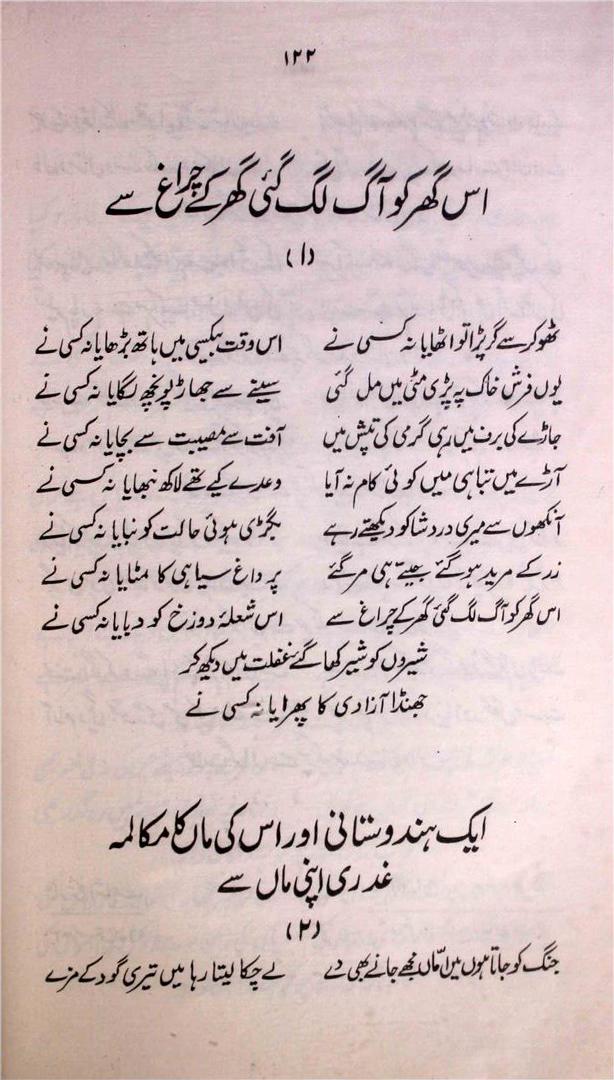 ۱۲۲
اس گھر کو آگ لگ گئی گھر کے چراغ سے
(۱)
ٹھوکر سے گر پڑا تو اٹھایا نہ کسی نے اس وقت بیکسی میں ہاتھ بڑھایا نہ کسی نے
یوں فرش خاک پہ پڑی مٹی میں مل گئی سینے سے جھاڑ پونچھ لگایا نہ کسی نے
جاڑے کی برف میں رہی گرمی کی تپش میں آفت سے مصیبت سے بچایا نہ کسی نے
آڑے میں تباہی میں کوئی کام نہ آیا وعدے کیے تھے لاکھ نبھایا نہ کسی نے
آنکھوں سے میری دردشا کو دیکھتے رہے بگڑی ہوئی حالت کو بنایا نہ کسی نے
زر کے مرید ہو گئے جیتے ہی مر گئے پر داغ سیاہی کا مٹایا نہ کسی نے
اس گھر کو آگ لگ گئی گھر کے چراغ سے اس شعلۂ دوزخ کو دبایا نہ کسی نے
شیروں کو شیر کھا گئے غفلت میں دیکھ کر
جھنڈا آزادی کا پھرایا نہ کسی نے
ایک ہندوستانی اور اس کی ماں کا مکالمہ
غدری اپنی ماں سے
(۲)
جنگ کو جاتا ہوں میں اماں مجھے جانے بھی دے لے چکا لیتا رہا میں تیری گود کے مزے